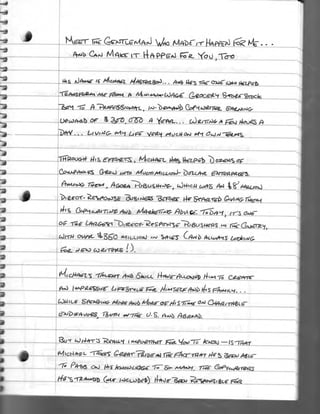 MEET THE GENTLEMAN WHO MADE IT HAPPEN FOR ME...
AND CAN MAKE IT HAPPEN FOR YOU, TOO
HIS NAME IS MICHAEL MASTERSON... AND HE'S THE ONE WHO HELPED
TRANSFORM ME FROM A MINIMUM WAGE GROCERY STORE STOCK
BOY TO A PROFESSIONAL, IN-DEMAND COPYWRITER EARNING
UPWARD OF $350,000 A YEAR... WRITING A FEW HOURS A
DAY... LIVING MY LIFE VERY MUCH ON MY OWN TERMS.
THROUGH HIS EFFORTS, MICHAEL HAS HELPED DOZENS OF
COMPANIES GROW INTO MULTI-MILLION-DOLLAR ENTERPRISES.
AMONG THEM, AGORA PUBLISHING, WHICH WAS AN $8 MILLION
DIRECT-RESPONSE BUSINESS BEFORE HE STARTED GIVING THEM
HIS COPYWRITING AND MARKETING ADVICE. TODAY, IT'S ONE
OF THE LARGEST DIRECT-RESPONSE PUBLISHERS IN THE COUNTRY,
WITH OVER $350 MILLION IN SALES (AND ALWAYS LOOKING
FOR NEW WRITERS!).
MICHAEL'S TALENT AND SKILL HAVE ALLOWED HIM TO CREATE
AN IMPRESSIVE LIFESTYLE FOR HIMSELF AND HIS FAMILY...
WHILE SPENDING MORE AND MORE OF HIS TIME ON CHARITABLE
ENDEAVORS, BOTH IN THE U.S. AND ABROAD.
BUT WHAT'S REALLY IMPORTANT FOR YOU TO KNOW - IS THAT
MICHAEL TAKES GREAT PRIDE IN THE FACT THAT HE'S BEEN ABLE
TO PASS ON HIS KNOWLEDGE TO SO MANY. THE COPYWRITERS
HE'S TRAINED (ME INCLUDED) HAVE BEEN RESPONSIBLE FOR